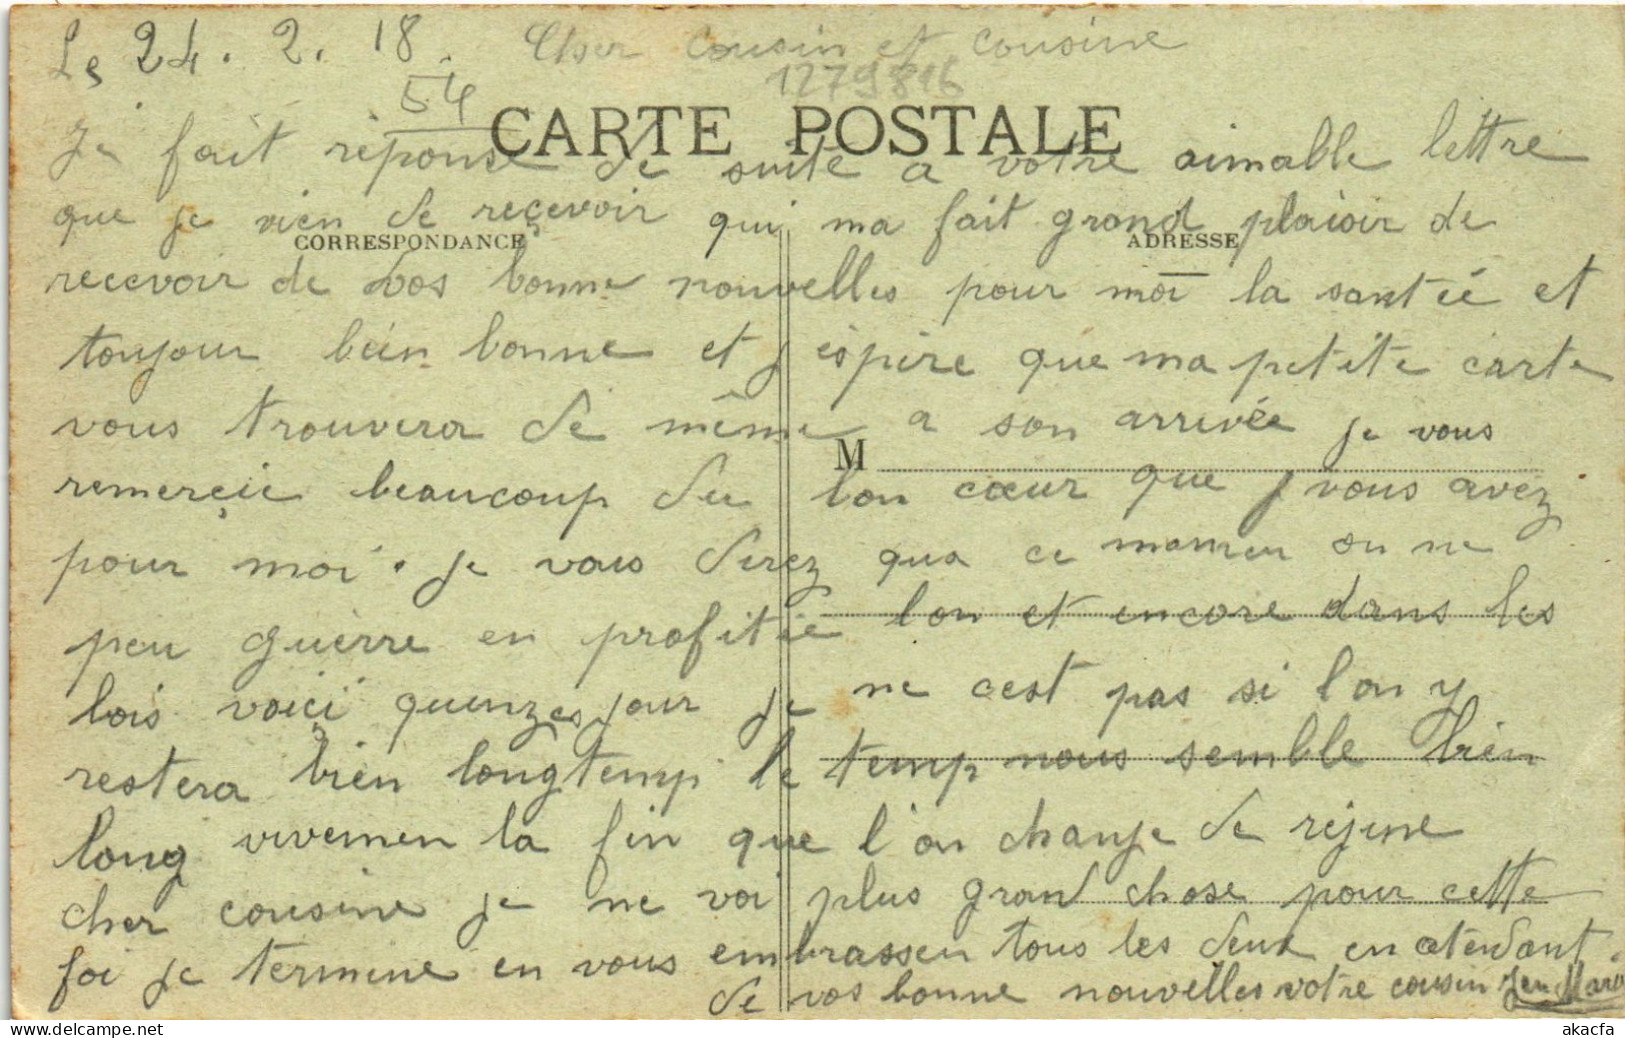 Le 24. 2. 18. Cher cousin et cousine
1279816
54
CARTE POSTALE
Je fait réponse de suite a votre aimable lettre
que je vien de reçevoir qui ma fait grand plaisir de
CORRESPONDANCE ADRESSE
recevoir de vos bonne nouvelles pour moi la santée et
toujour bien bonne et j'éspère que ma petite carte
vous trouvera de même a son arrivée je vous
M
remerçie beaucoup du bon cœur que vous avez
pour moi. je vous direz qua ce momen on ne
peu guèrre en profitée lon et encore dans les
bois voiçi quinzes jour je ne cest pas si l'on y
restera bien longtemp le temp nous semble bien
long vivemen la fin que l'on change de réjine
cher cousine je ne voi plus grand chose pour cette
foi je termine en vous embrassen tous les deux en atendant
de vos bonne nouvelles votre cousin
akacfa